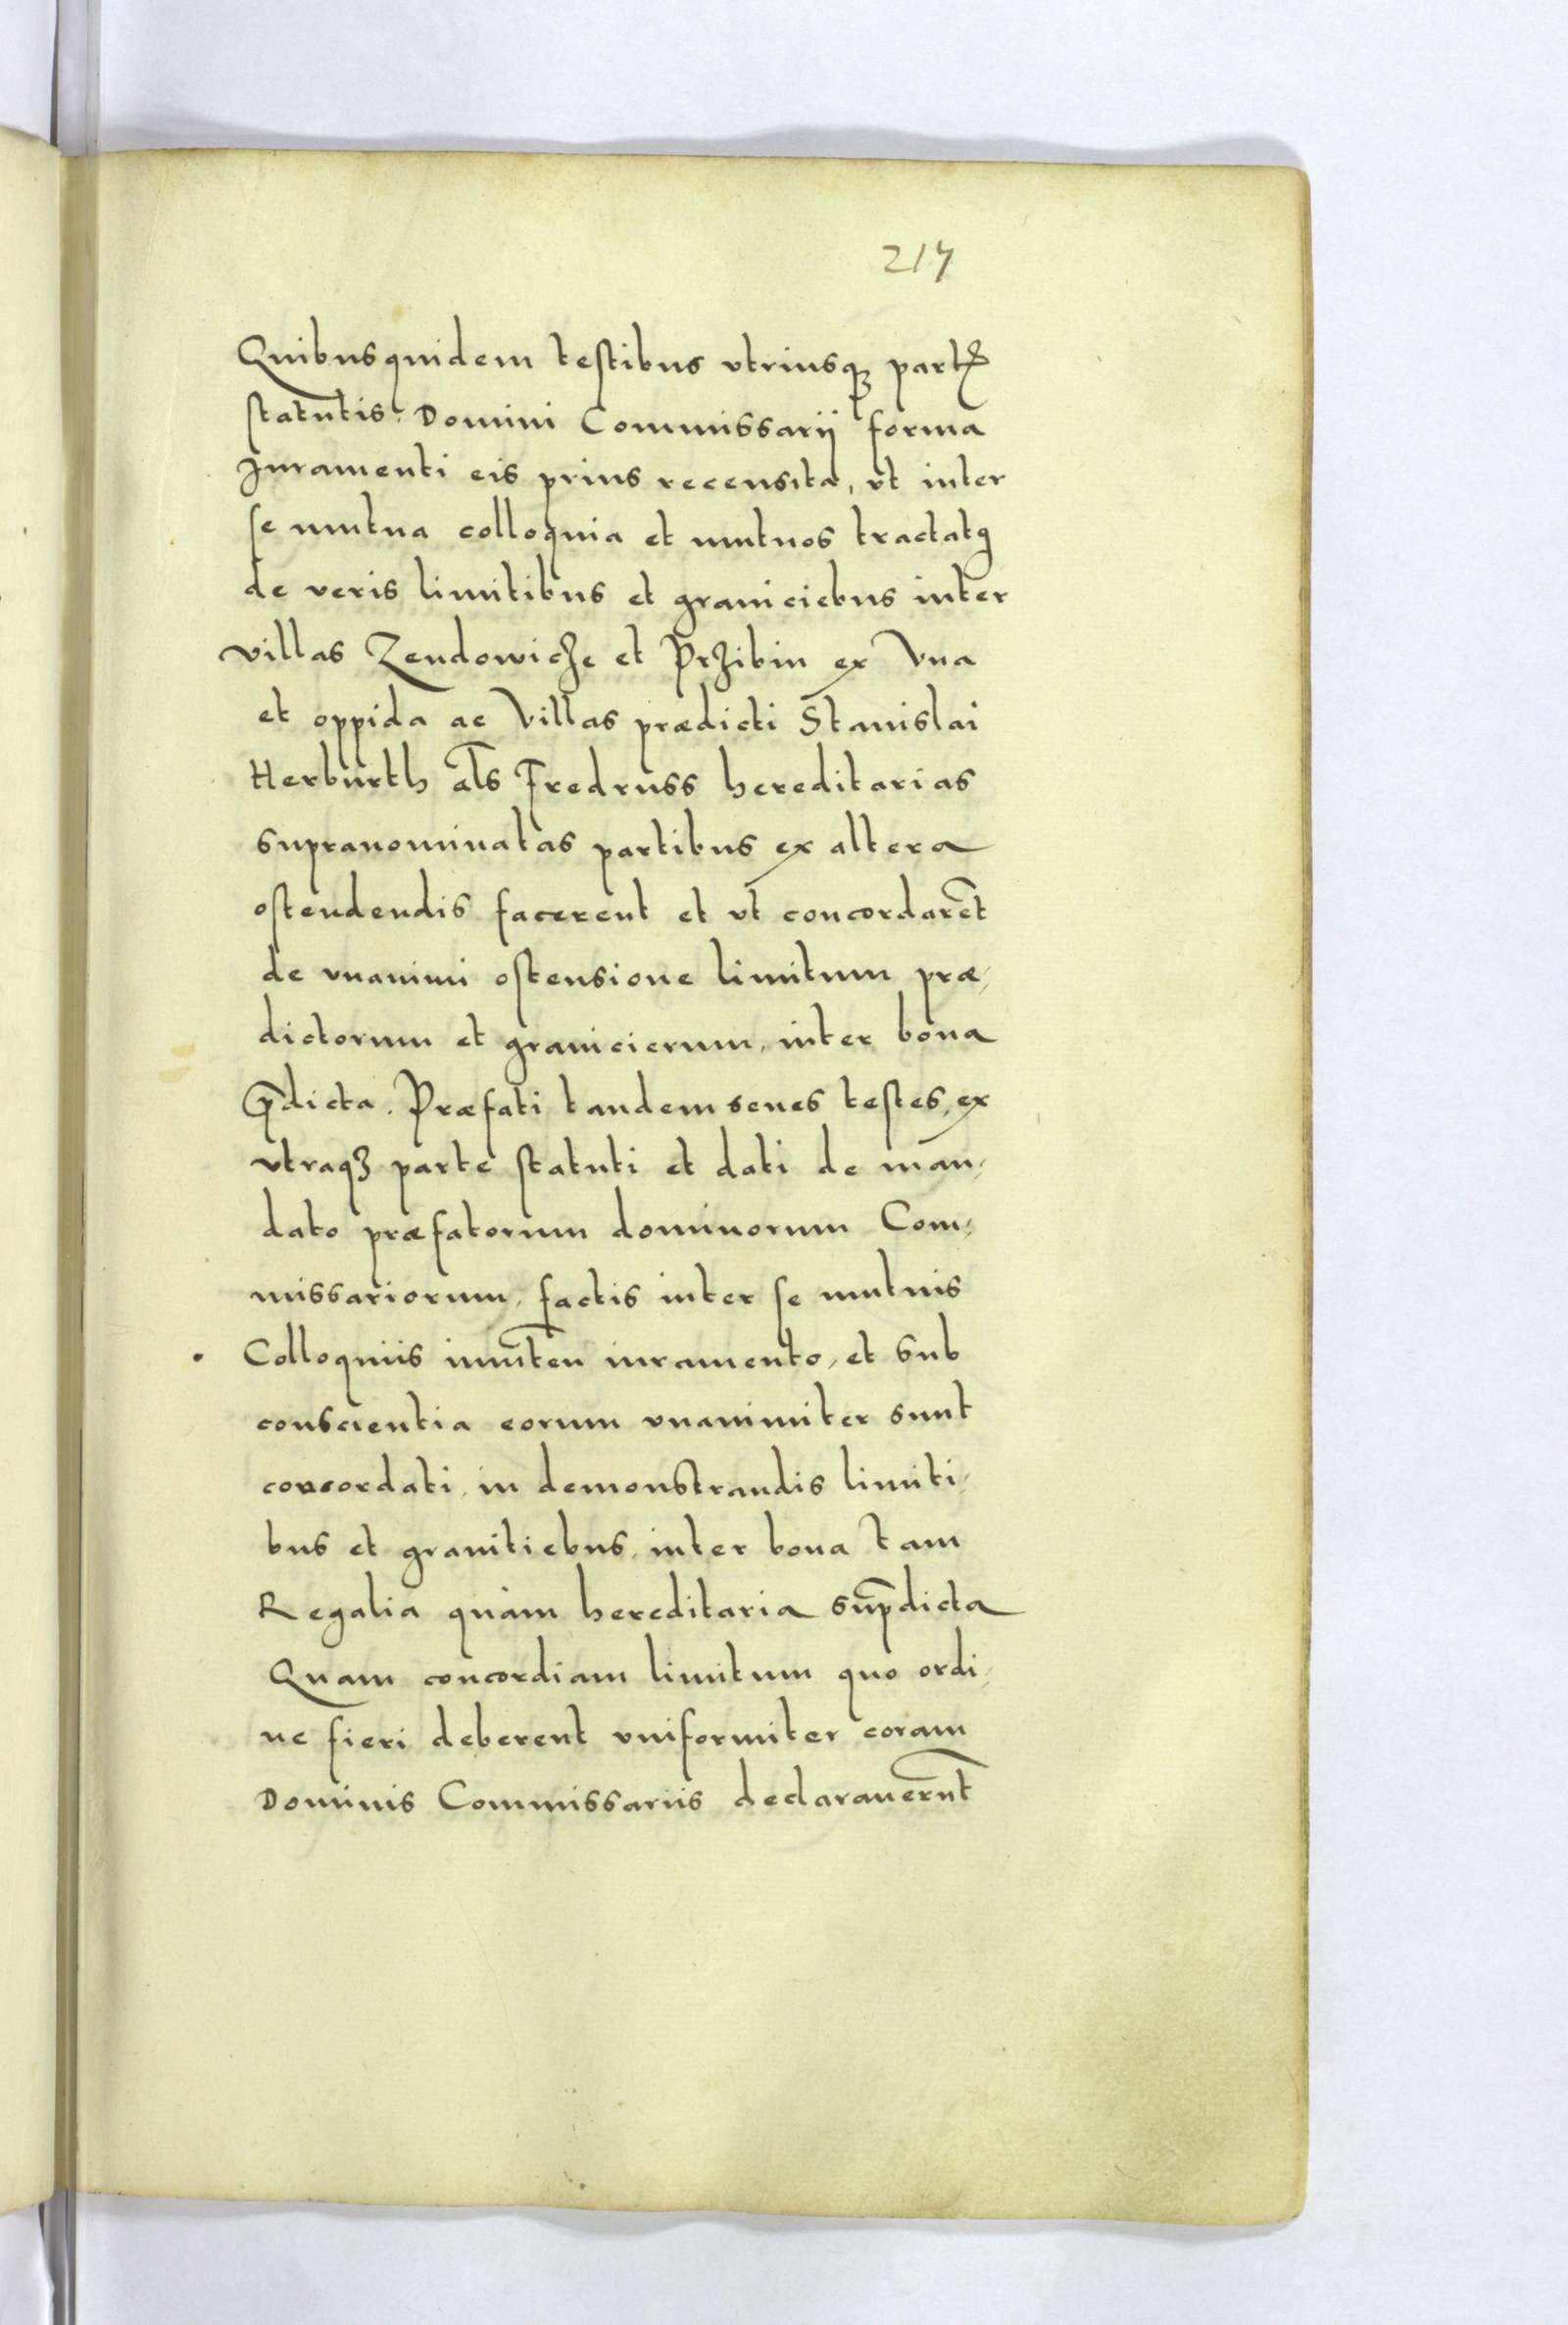 217
Quibusquidem testibus vtriusqꝫ partꝭ
statutis. Domini Commissarij forma
Juramenti eis prius recensita, vt inter
se mutua colloquia et mutuos tractatꝯ
de veris limitibus et graniciebus inter
villas Zendowicze et Przibin ex Vna
et oppida ac Villas prædicti Stanislai
Herburth al̃s Fredruss hereditarias
supranominatas partibus ex altera
ostendendis facerent et vt concordarẽt
de vnanimi ostensione limitum præ,
dictorum et granicierum, inter bona
p̃dicta. Præfati tandem senes testes, ex
vtraqꝫ parte statuti et dati de man,
dato præfatorum dominorum Com,
missariorum, factis inter se mutuis
Colloquiis inniten̄ iuramento, et sub
conscientia eorum vnanimiter sunt
concordati, in demonstrandis limiti,
bus et granitiebus, inter bona tam
Regalia quàm hereditaria sup̃dicta
Quam concordiam limitum quo ordi,
ne fieri deberent vniformiter coram
Dominis Commissariis declarauerũt